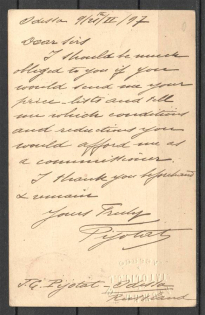 Odessa 9/21/II/97
Dear Sirs
I should be much
obliged to you if you
would send me your
price-lists and tell
me which conditions
and reductions you
would afford me as
a commissioner.
I thank you beforehand
& remain
Yours Truly
Pijotat
T.G. Pijotat - Odessa
Russland